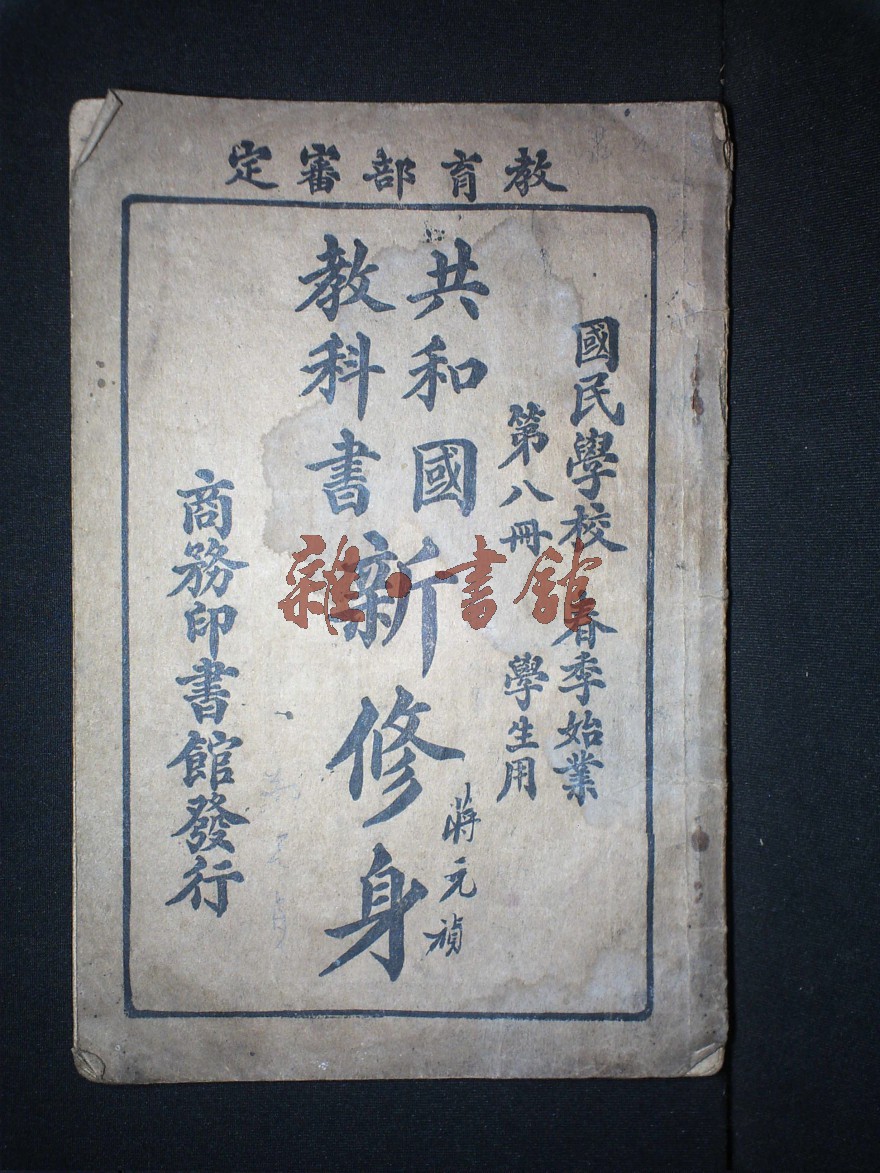 教育部審定
國民學校 春季始業
第八冊 學生用
共和國
教科書
新修身
蔣元禎
商務印書館發行
雜·書館